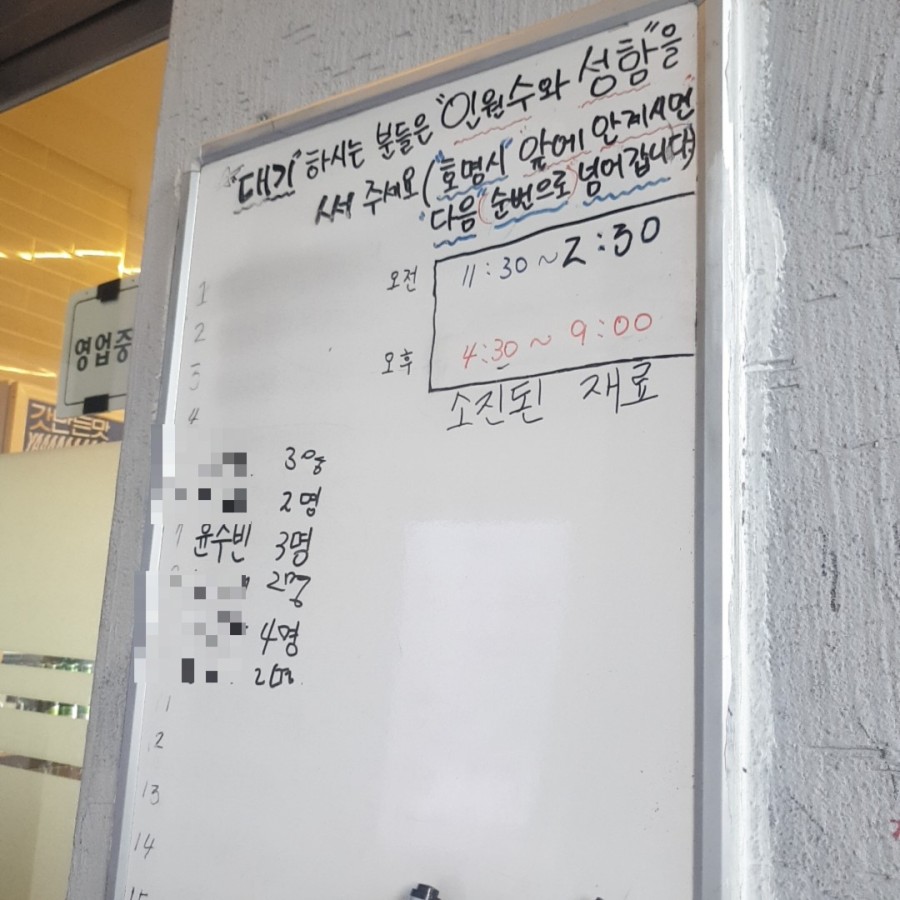 "대기" 하시는 분들은 "인원수와 성함"을
써 주세요 ("호명시" 앞에 안계시면
"다음" 순번으로 넘어갑니다)
오전 11:30 ~ 2:30
오후 4:30 ~ 9:00
소진된 재료
1
2
3
4
3명
2명
7 윤수빈 3명
2명
4명
2명
12
13
14
15
영업중